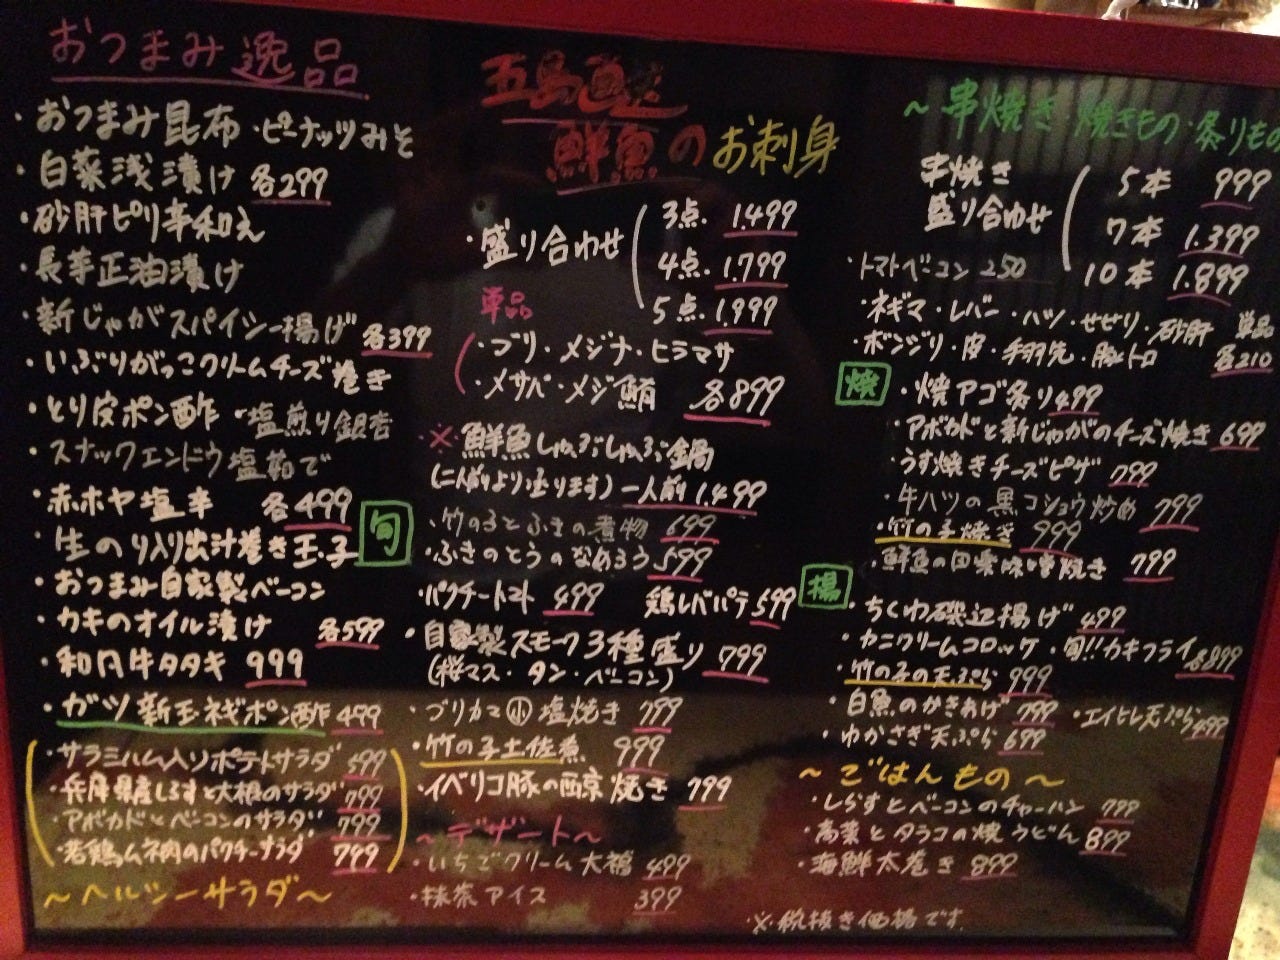 おつまみ逸品
・おつまみ昆布・ピーナッツみそ
・白菜浅漬け 各299
・砂肝ピリ辛和え
・長芋正油漬け
・新じゃがスパイシー揚げ 各399
・いぶりがっこクリームチーズ巻き
・とり皮ポン酢・塩煎り銀杏
・スナックエンドウ塩茹で
・赤ホヤ塩辛 各499
・生のり入り出汁巻き玉子
・おつまみ自家製ベーコン
・カキのオイル漬け 各599
・和牛タタキ 999
・ガツ新玉ネギポン酢 499
・サラミハム入りポテトサラダ 599
・兵庫県産しらすと大根のサラダ 799
・アボカドとベーコンのサラダ 799
・若鶏ムネ肉のパクチーサラダ 799
～ヘルシーサラダ～
旬
五島直送
鮮魚のお刺身
・盛り合わせ
3点. 1.499
4点. 1.799
5点. 1.999
単品
・ブリ・メジナ・ヒラマサ
・〆サバ・メジ鮪 各899
※鮮魚しゃぶしゃぶ鍋
(二人前より承ります) 一人前1.499
・竹の子とふきの煮物 699
・ふきのとうのなめろう 599
・パクチートマト 499 鶏レバパテ 599
・自家製スモーク3種盛り 799
(桜マス・タン・ベーコン)
・ブリカマ小塩焼き 799
・竹の子土佐煮 999
・イベリコ豚の西京焼き 799
～デザート～
・いちごクリーム大福 499
・抹茶アイス 399
～串焼き・焼きもの・炙りもの
串焼き
盛り合わせ
5本 999
7本 1.399
10本 1.899
・トマトベーコン 250
・ネギマ・レバー・ハツ・せせり・砂肝
・ボンジリ・皮・手羽先・豚トロ
単品
各210
焼
・焼アゴ炙り 499
・アボカドと新じゃがのチーズ焼き 699
・うす焼きチーズピザ 799
・牛ハツの黒コショウ炒め 799
・竹の子焼き 999
・鮮魚の田楽味噌焼き 799
揚
・ちくわ磯辺揚げ 499
・カニクリームコロッケ・旬!!カキフライ 各899
・竹の子の天ぷら 999
・白魚のかきあげ 799 ・エイヒレ天ぷら 499
・わかさぎ天ぷら 699
～ごはんもの～
・しらすとベーコンのチャーハン 799
・高菜とタラコの焼うどん 899
・海鮮太巻き 899
※税抜き価格です